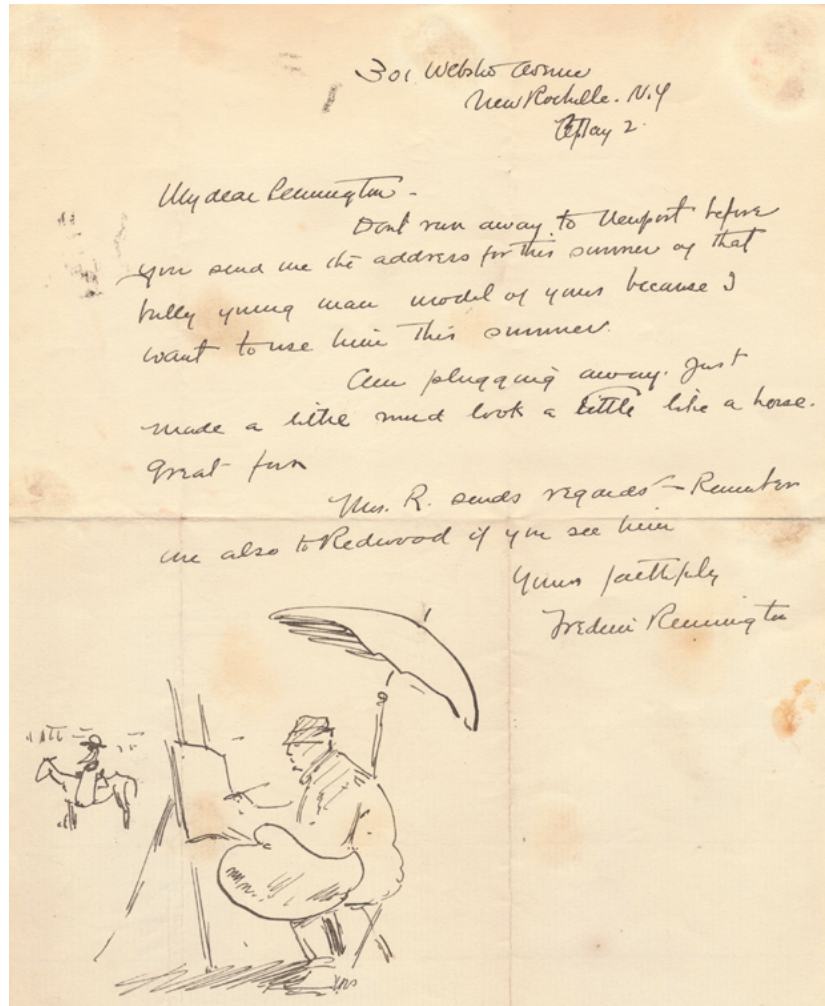 301 Webster Avenue
New Rochelle. N.Y
May 2.
My dear Pennington -
Dont run away to Newport before
you send me the address for this summer of that
bully young man model of yours because I
want to use him this summer.
Am plugging away. Just
made a little mud look a little like a horse.
Great fun
Mrs. R. sends regards - Remember
me also to Redwood if you see him
Yours faithfully
Frederic Remington